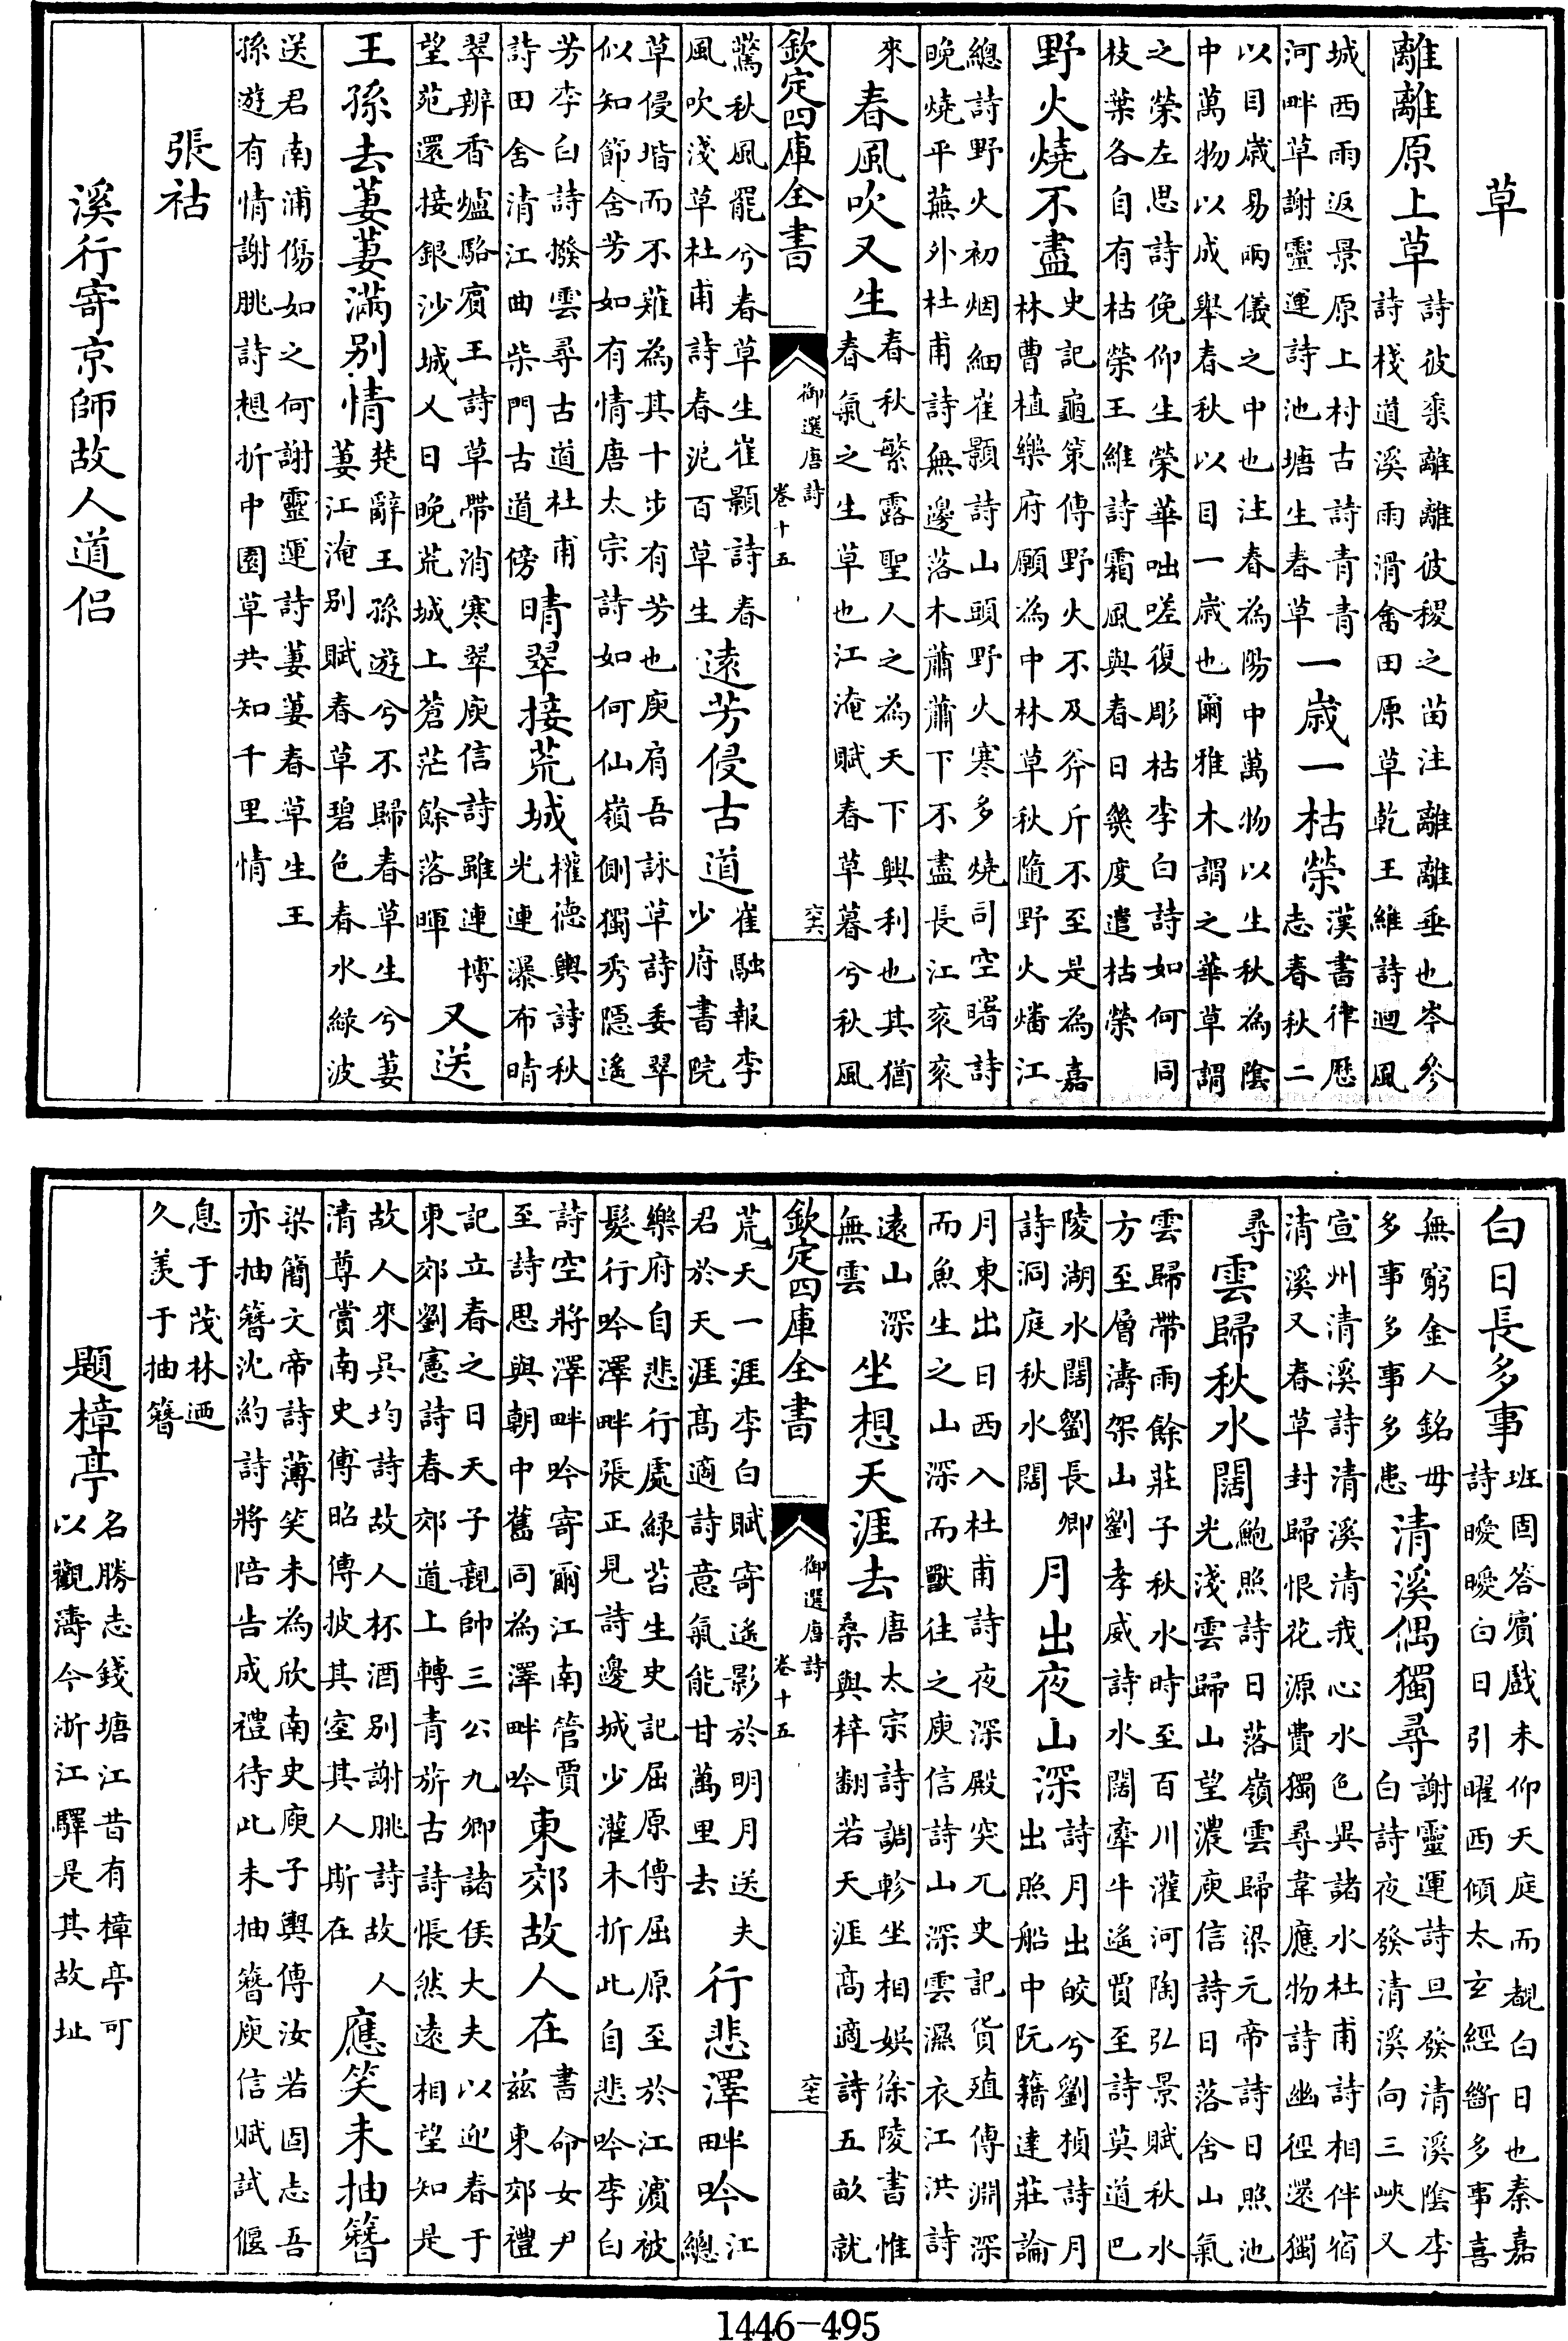 草
離離原上草
詩彼黍離離彼稷之苗注離離垂也岑參
詩棧道溪雨滑畬田原草乾王維詩迴風
城西雨返景原上村古詩青青
河畔草謝靈運詩池塘生春草
一歲一枯榮
漢書律厯
志春秋二
以目歲易兩儀之中也注春為陽中萬物以生秋為陰
中萬物以成舉春秋以目一歲也爾雅木謂之華草謂
之榮左思詩俛仰生榮華咄嗟復彫枯李白詩如何同
枝葉各自有枯榮王維詩霜風與春日幾度遣枯榮
野火燒不盡
史記龜策傳野火不及斧斤不至是為嘉
林曹植樂府願為中林草秋隨野火燔江
總詩野火初烟細崔顥詩山頭野火寒多燒司空曙詩
晚燒平蕪外杜甫詩無邊落木蕭蕭下不盡長江衮衮
來
春風吹又生
春秋繁露聖人之為天下興利也其猶
春氣之生草也江淹賦春草暮兮秋風
欽定四庫全書
御選唐詩
卷十五
六六
驚秋風罷兮春草生崔顥詩春
風吹淺草杜甫詩春泥百草生
遠芳侵古道
崔融報李
少府書院
草侵堦而不薙為其十步有芳也庾肩吾詠草詩委翠
似知節含芳如有情唐太宗詩如何仙嶺側獨秀隱遙
芳李白詩撥雲尋古道杜甫
詩田舍清江曲柴門古道傍
晴翠接荒城
權德輿詩秋
光連瀑布晴
翠辨香爐駱賓王詩草帶消寒翠庾信詩雖連博
望苑還接銀沙城乂日晚荒城上蒼茫餘落暉
又送
王孫去萋萋滿別情
楚辭王孫遊兮不歸春草生兮萋
萋江淹別賦春草碧色春水綠波
送君南浦傷如之何謝靈運詩萋萋春草生王
孫遊有情謝朓詩想折中園草共知千里情
張祜
溪行寄京師故人道侶
白日長多事
班固答賓戲未仰天庭而覩白日也秦嘉
詩曖曖白日引曜西傾太玄經斷多事喜
無窮金人銘毋
多事多事多患
清溪偶獨尋
謝靈運詩旦發清溪陰李
白詩夜發清溪向三峽又
宣州清溪詩清溪清我心水色異諸水杜甫詩相伴宿
清溪又春草封歸恨花源費獨尋韋應物詩幽徑還獨
尋
雲歸秋水闊
鮑照詩日落嶺雲歸梁元帝詩日照池
光淺雲歸山望濃庾信詩日落含山氣
雲歸帶雨餘莊子秋水時至百川灌河陶弘景賦秋水
方至層濤架山劉孝威詩水闊牽牛遙賈至詩莫道巴
陵湖水闊劉長卿
詩洞庭秋水闊
月出夜山深
詩月出皎兮劉楨詩月
出照船中阮籍達莊論
月東出日西入杜甫詩夜深殿突兀史記貨殖傳淵深
而魚生之山深而獸往之庾信詩山深雲濕衣江洪詩
遠山深
無雲
坐想天涯去
唐太宗詩調軫坐相娱徐陵書惟
桑與梓翻若天涯高適詩五畝就
欽定四庫全書
御選唐詩
卷十五
六七
荒天一涯李白賦寄遙影於明月送夫
君於天涯高適詩意氣能甘萬里去
行悲澤畔吟
江
總
樂府自悲行處綠苔生史記屈原傳屈原至於江濵被
髮行吟澤畔張正見詩邊城少灌木折此自悲吟李白
詩空將澤畔吟寄爾江南管賈
至詩思與朝中舊同為澤畔吟
東郊故人在
書命女尹
兹東郊禮
記立春之日天子親帥三公九卿諸侯大夫以迎春于
東郊劉憲詩春郊道上轉青旂古詩悵然遠相望知是
故人來吳均詩故人杯酒別謝朓詩故人
清尊賞南史傳昭傳披其室其人斯在
應笑未抽簪
梁簡文帝詩薄笑未為欣南史庾子輿傳汝若固志吾
亦抽簪沈約詩將陪告成禮待此未抽簪庾信賦試偃
息于茂林迺
久羨于抽簪
題樟亭
名勝志錢塘江昔有樟亭可
以觀濤今浙江驛是其故址
1446-495